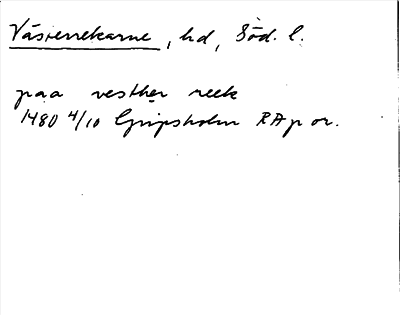 Västerrekarne, hd, Söd. l.
paa vesther reek
1480 4/10 Gripsholm RA p or.